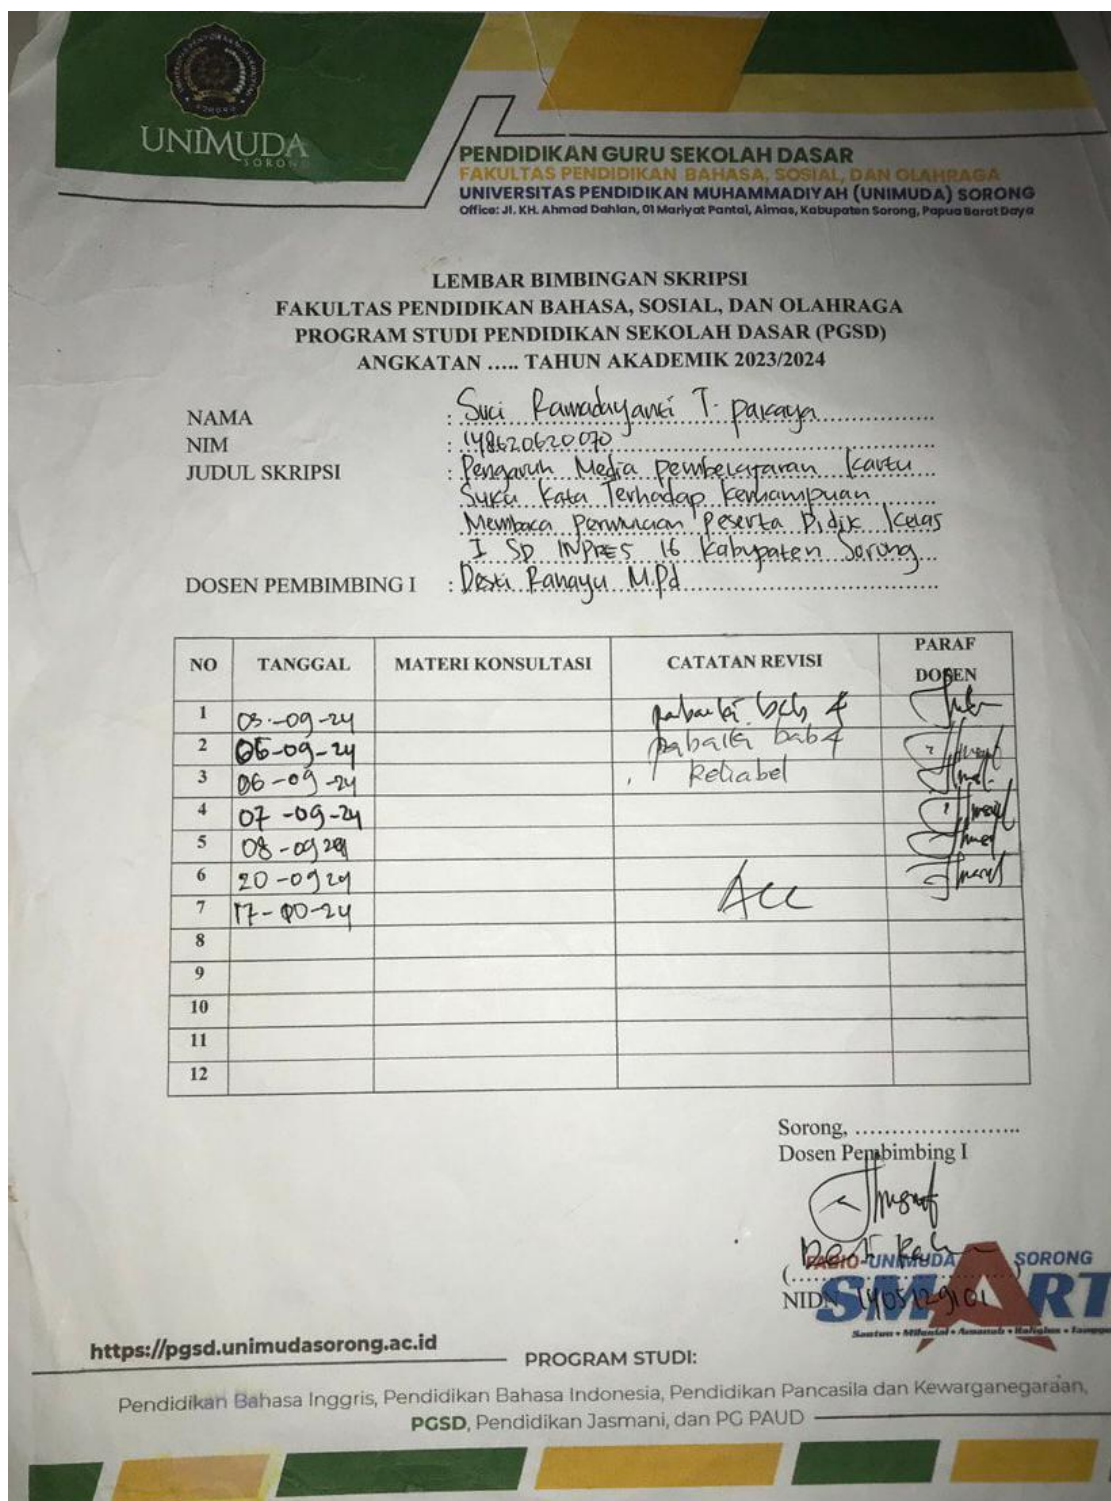 UNIMUDA
SORONG
PENDIDIKAN GURU SEKOLAH DASAR
FAKULTAS PENDIDIKAN BAHASA, SOSIAL, DAN OLAHRAGA
UNIVERSITAS PENDIDIKAN MUHAMMADIYAH (UNIMUDA) SORONG
Office: Jl. KH. Ahmad Dahlan, 01 Mariyat Pantai, Aimas, Kabupaten Sorong, Papua Barat Daya
LEMBAR BIMBINGAN SKRIPSI
FAKULTAS PENDIDIKAN BAHASA, SOSIAL, DAN OLAHRAGA
PROGRAM STUDI PENDIDIKAN SEKOLAH DASAR (PGSD)
ANGKATAN ..... TAHUN AKADEMIK 2023/2024
NAMA : Suci Ramadayanti T. pakaya
NIM : 148620620070
JUDUL SKRIPSI : Pengaruh Media pembelajaran kartu
Suku Kata Terhadap kemampuan
Membaca permulaan Peserta Didik Kelas
I SD INPRES 16 Kabupaten Sorong
DOSEN PEMBIMBING I : Desti Rahayu M.Pd
NO TANGGAL MATERI KONSULTASI CATATAN REVISI PARAF DOSEN
1 03-09-24 pabaiki bab 4
2 05-09-24 pabaiki bab 4
3 06-09-24 Reliabel
4 07-09-24
5 08-09 24
6 20-09 24
7 17-10-24 Acc
8
9
10
11
12
Sorong, ........................
Dosen Pembimbing I
FABIO-UNIMUDA SORONG
NIDN 1405129101
SMART
Santun • Milenial • Amanah • Religius •
https://pgsd.unimudasorong.ac.id
PROGRAM STUDI:
Pendidikan Bahasa Inggris, Pendidikan Bahasa Indonesia, Pendidikan Pancasila dan Kewarganegaraan,
PGSD, Pendidikan Jasmani, dan PG PAUD